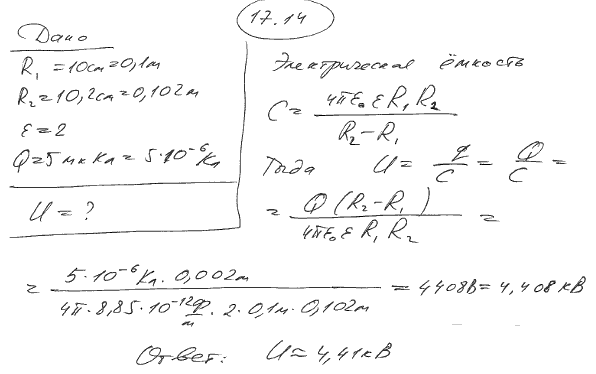 17.14
Дано
R₁ = 10см = 0,1м
R₂ = 10,2см = 0,102м
ε = 2
Q = 5мкКл = 5·10⁻⁶Кл
U = ?
Электрическая ёмкость
C = 4πε₀εR₁R₂ / R₂ − R₁
Тогда U = q/C = Q/C =
= Q(R₂ − R₁) / 4πε₀εR₁R₂ =
= 5·10⁻⁶Кл · 0,002м / 4π · 8,85·10⁻¹² ф/м · 2 · 0,1м · 0,102м = 4408В = 4,408кВ
Ответ: U = 4,41кВ